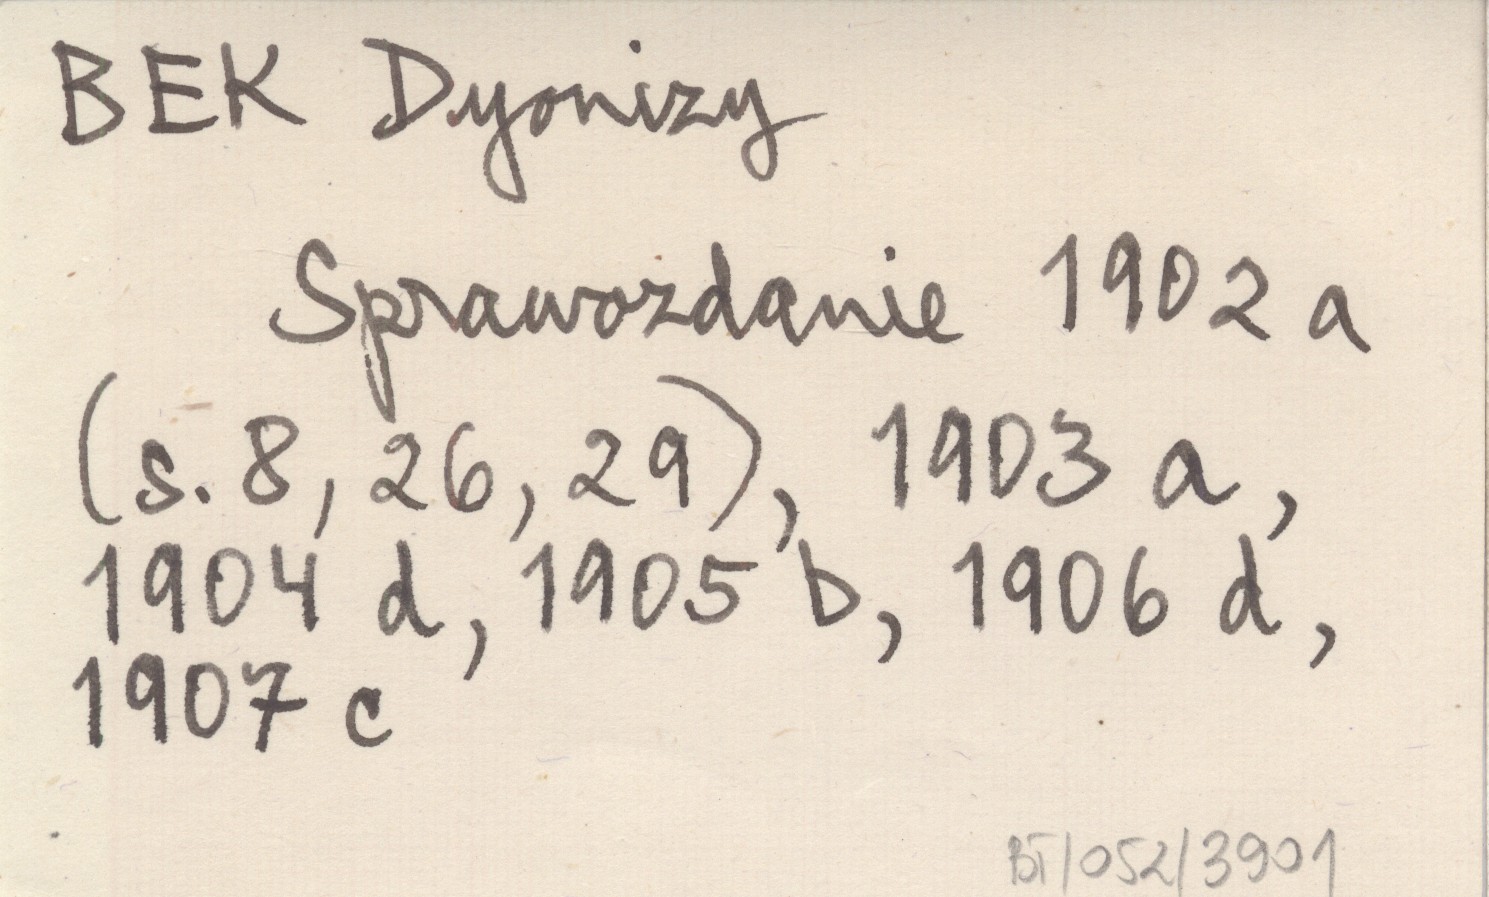 BEK Dyonizy
Sprawozdanie 1902 a
(s. 8, 26, 29), 1903 a,
1904 d, 1905 b, 1906 d,
1907 c
BT/052/3901